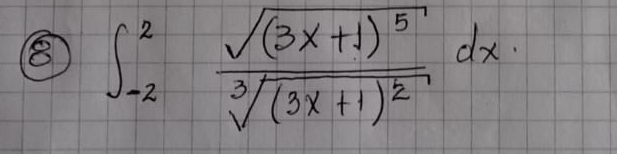 ⑧ ∫₋₂² √((3x+1)⁵) / ∛((3x+1)²) dx.